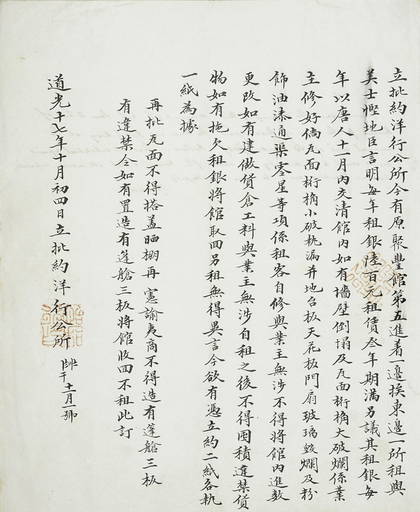 立批約洋行公所今有原聚豐館第五進着一邊挨東邊一所租與
美士慳地臣言明每年租銀陸百元租賃叁年期滿另議其租銀每
年以唐人十一月內交清館內如有墻壁倒塌及瓦面桁桷大破爛係業
主修好倘瓦面桁桷小破執漏并地台板天花板門扇玻璃毀爛及粉
飾油漆通渠零星等項係租客自修與業主無涉不得將館內進數
更改如有建做貨倉工料與業主無涉自租之後不得囤積違禁貨
物如有拖欠租銀將館取回另租無得異言今欲有憑立約二紙各執
一紙為據
再批瓦面不得搭蓋晒棚再 憲諭夷商不得造有篷艙三板
有違禁令如有置造有篷艙三板將館收回不租此訂
道光十七年十月初四日立批約洋行公所